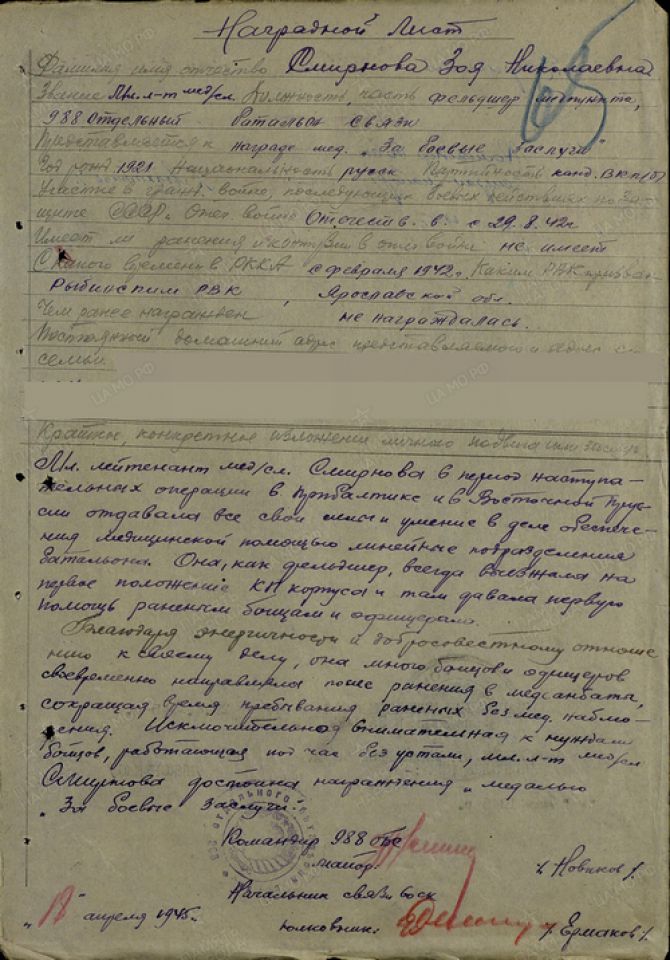 Наградной Лист
Фамилия имя отчество Смирнова Зоя Николаевна
Звание Мл. л-т мед/сл. Должность, часть фельдшер медпункта,
988 отдельный батальон связи
Представляется к награде мед. „За боевые заслуги"
Год рожд. 1921 Национальность русск Партийность канд. ВКП(б)
Участие в гражд. войне, последующих боевых действиях по за-
щите СССР и Отеч. войне Отечеств. в. с 29.8.42г
Имеет ли ранения и контузии в отеч войне не имеет
С какого времени в РККА с февраля 1942г. Каким РВК призван
Рыбинским РВК, Ярославской обл.
Чем ранее награжден не награждалась.
Постоянный домашний адрес представляемого и адрес его
семьи.
Краткое, конкретное изложение личного подвига или заслуг
Мл. лейтенант мед/сл. Смирнова в период наступа-
тельных операции в Прибалтике и в Восточной Прус-
сии отдавала все свои силы и умение в деле обеспече-
ния медицинской помощью линейные подразделения
батальона. Она, как фельдшер, всегда выезжала на
первое положение КП корпуса и там давала первую
помощь раненым бойцам и офицерам.
Благодаря энергичности и добросовестному отноше-
нию к своему делу, она много бойцов и офицеров
своевременно направляла после ранения в медсанбаты,
сокращая время пребывания раненых без мед. наблю-
дения. Исключительно внимательная к нуждам
бойцов, работающая под час без устали, мл. л-т мед/сл
Смирнова достойна награждения „медалью
„За боевые заслуги".
Командир 988 обс
майор. /Новиков/.
Начальник связи 60ск
полковник. /Ермаков/.
„12" апреля 1945г.
ЦАМО.РФ